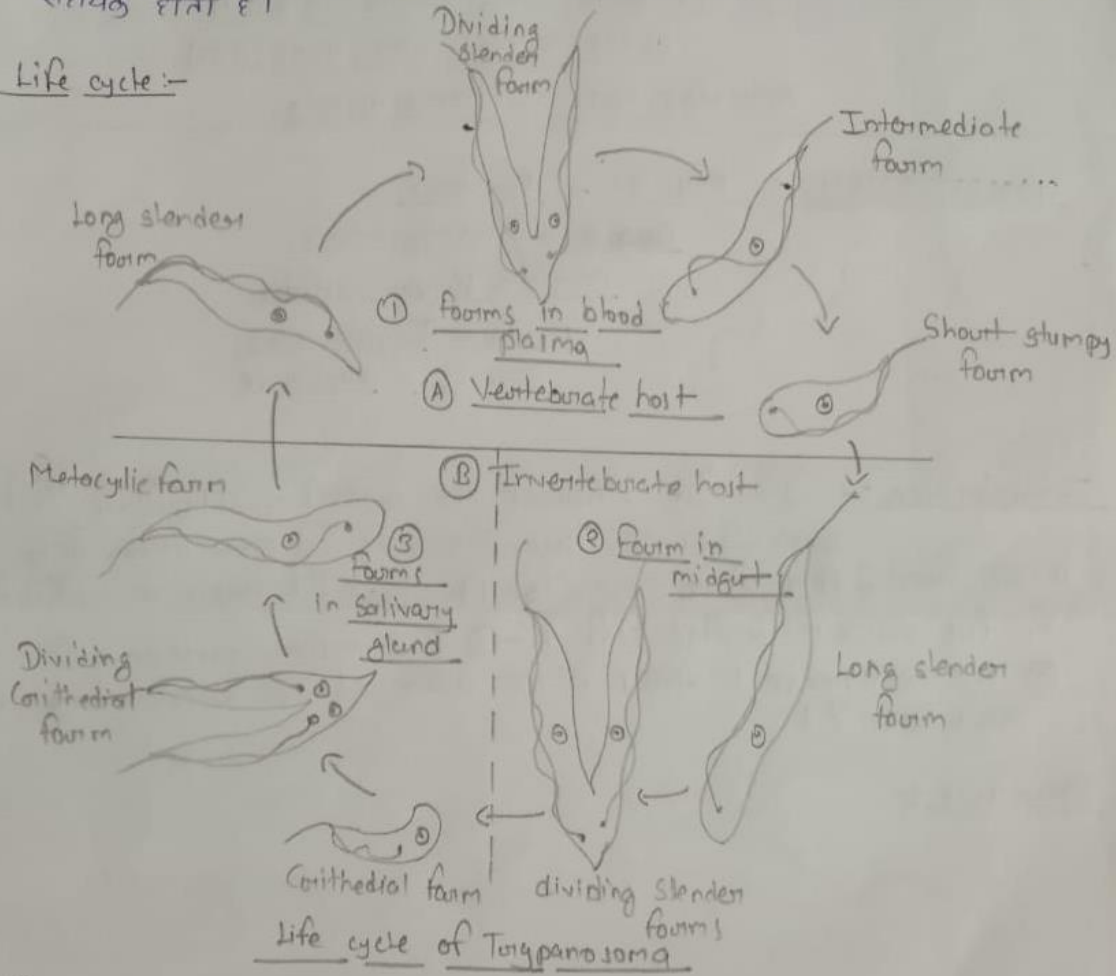 सहायक होता है।
Life cycle :-
Dividing
slender
form
Intermediate
form
Long slender
form
① forms in blood
plasma
Short stumpy
form
Ⓐ Vertebrate host
Metacyilic form
Ⓑ Invertebrate host
③
forms
in Salivary
gland
② form in
midgut
Dividing
Crithedial
form
Long slender
form
Crithedial form
dividing Slender
forms
Life cycle of Trypanosoma